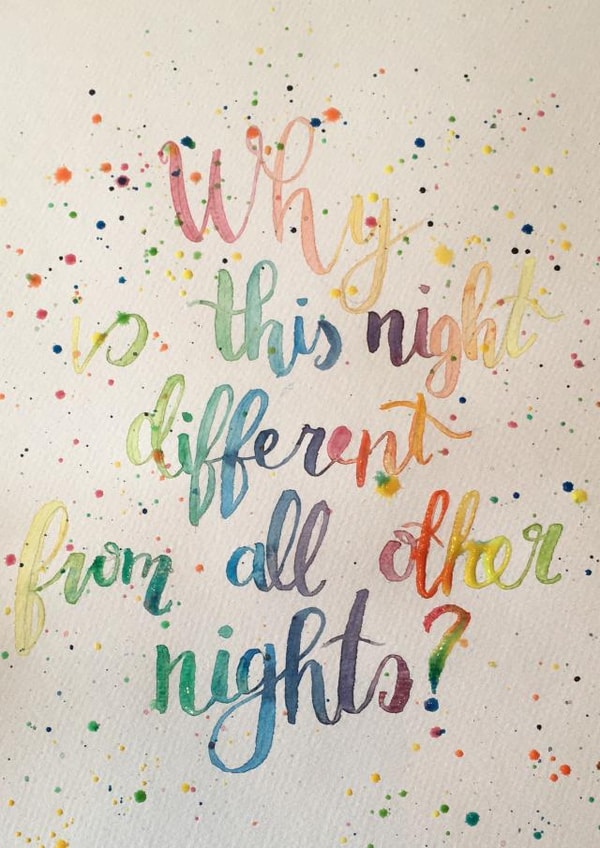 Why
is this night
different
from all other
nights?